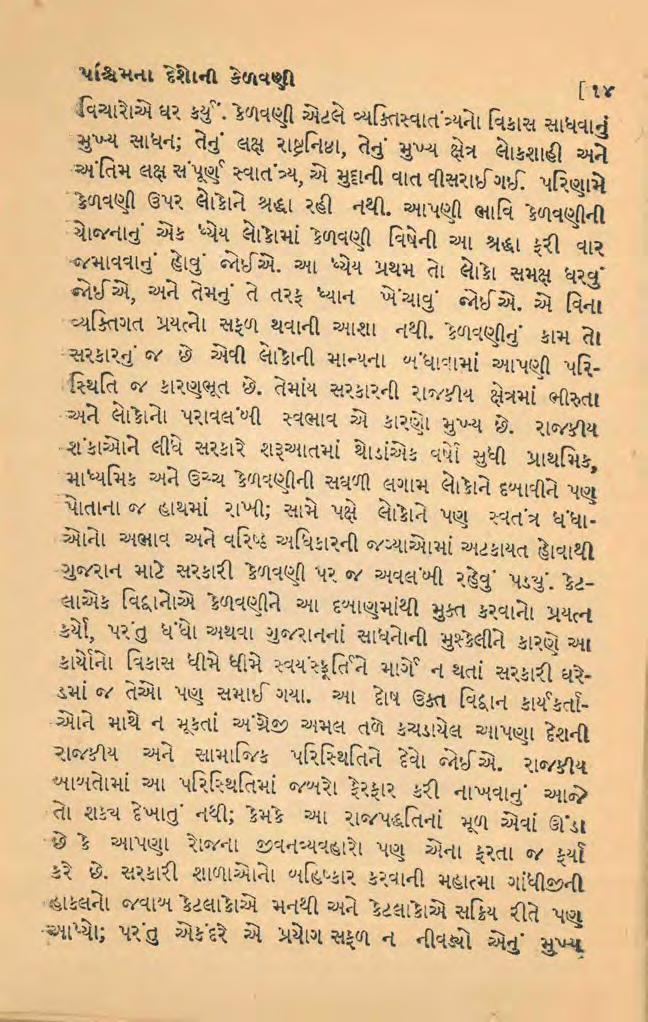 પશ્ચિમના દેશોની કેળવણી
[ ૧૪
વિચારોએ ઘર કર્યું. કેળવણી એટલે વ્યક્તિસ્વાતંત્ર્યનો વિકાસ સાધવાનું
મુખ્ય સાધન; તેનું લક્ષ રાષ્ટ્રનિષ્ઠા, તેનું મુખ્ય ક્ષેત્ર લોકશાહી અને
અંતિમ લક્ષ સંપૂર્ણ સ્વાતંત્ર્ય, એ મુદ્દાની વાત વીસરાઈ ગઈ. પરિણામે
કેળવણી ઉપર લોકોને શ્રદ્ધા રહી નથી. આપણી ભાવિ કેળવણીની
યોજનાનું એક ધ્યેય લોકોમાં કેળવણી વિષેની આ શ્રદ્ધા ફરી વાર
જમાવવાનું હોવું જોઈએ. આ ધ્યેય પ્રથમ તો લોકો સમક્ષ ધરવું
જોઈએ, અને તેમનું તે તરફ ધ્યાન ખેંચાવું જોઈએ. એ વિના
વ્યક્તિગત પ્રયત્નો સફળ થવાની આશા નથી. કેળવણીનું કામ તો
સરકારનું જ છે એવી લોકોની માન્યના બંધાવામાં આપણી પરિ-
સ્થિતિ જ કારણભૂત છે. તેમાંય સરકારની રાજકીય ક્ષેત્રમાં ભીરુતા
અને લોકોનો પરાવલંબી સ્વભાવ એ કારણો મુખ્ય છે. રાજકીય
શંકાઓને લીધે સરકારે શરૂઆતમાં થોડાંએક વર્ષો સુધી પ્રાથમિક,
માધ્યમિક અને ઉચ્ચ કેળવણીની સઘળી લગામ લોકોને દબાવીને પણ
પોતાના જ હાથમાં રાખી; સામે પક્ષે લોકોને પણ સ્વતંત્ર ધંધા-
ઓનો અભાવ અને વરિષ્ઠ અધિકારની જગ્યાઓમાં અટકાયત હોવાથી
ગુજરાન માટે સરકારી કેળવણી પર જ અવલંબી રહેવું પડયું. કેટ-
લાએક વિદ્વાનોએ કેળવણીને આ દબાણમાંથી મુક્ત કરવાનો પ્રયત્ન
કર્યો, પરંતુ ધંધો અથવા ગુજરાનનાં સાધનોની મુશ્કેલીને કારણે આ
કાર્યોનો વિકાસ ધીમે ધીમે સ્વયંસ્ફૂર્તિને માર્ગે ન થતાં સરકારી ઘરે-
ડમાં જ તેઓ પણ સમાઈ ગયા. આ દોષ ઉક્ત વિદ્વાન કાર્યકર્તા-
ઓને માથે ન મૂકતાં અંગ્રેજી અમલ તળે કચડાયેલ આપણા દેશની
રાજકીય અને સામાજિક પરિસ્થિતિને દેવો જોઈએ. રાજકીય
બાબતોમાં આ પરિસ્થિતિમાં જબરો ફેરફાર કરી નાખવાનું આજે
તો શક્ય દેખાતું નથી; કેમકે આ રાજપદ્ધતિનાં મૂળ એવાં ઊંડા
છે કે આપણા રોજના જીવનવ્યવહારો પણ એના ફરતા જ ફર્યા
કરે છે. સરકારી શાળાઓનો બહિષ્કાર કરવાની મહાત્મા ગાંધીજીની
હાકલનો જવાબ કેટલાકોએ મનથી અને કેટલાકોએ સક્રિય રીતે પણ
આપ્યો; પરંતુ એકંદરે એ પ્રયોગ સફળ ન નીવડ્યો એનું મુખ્ય